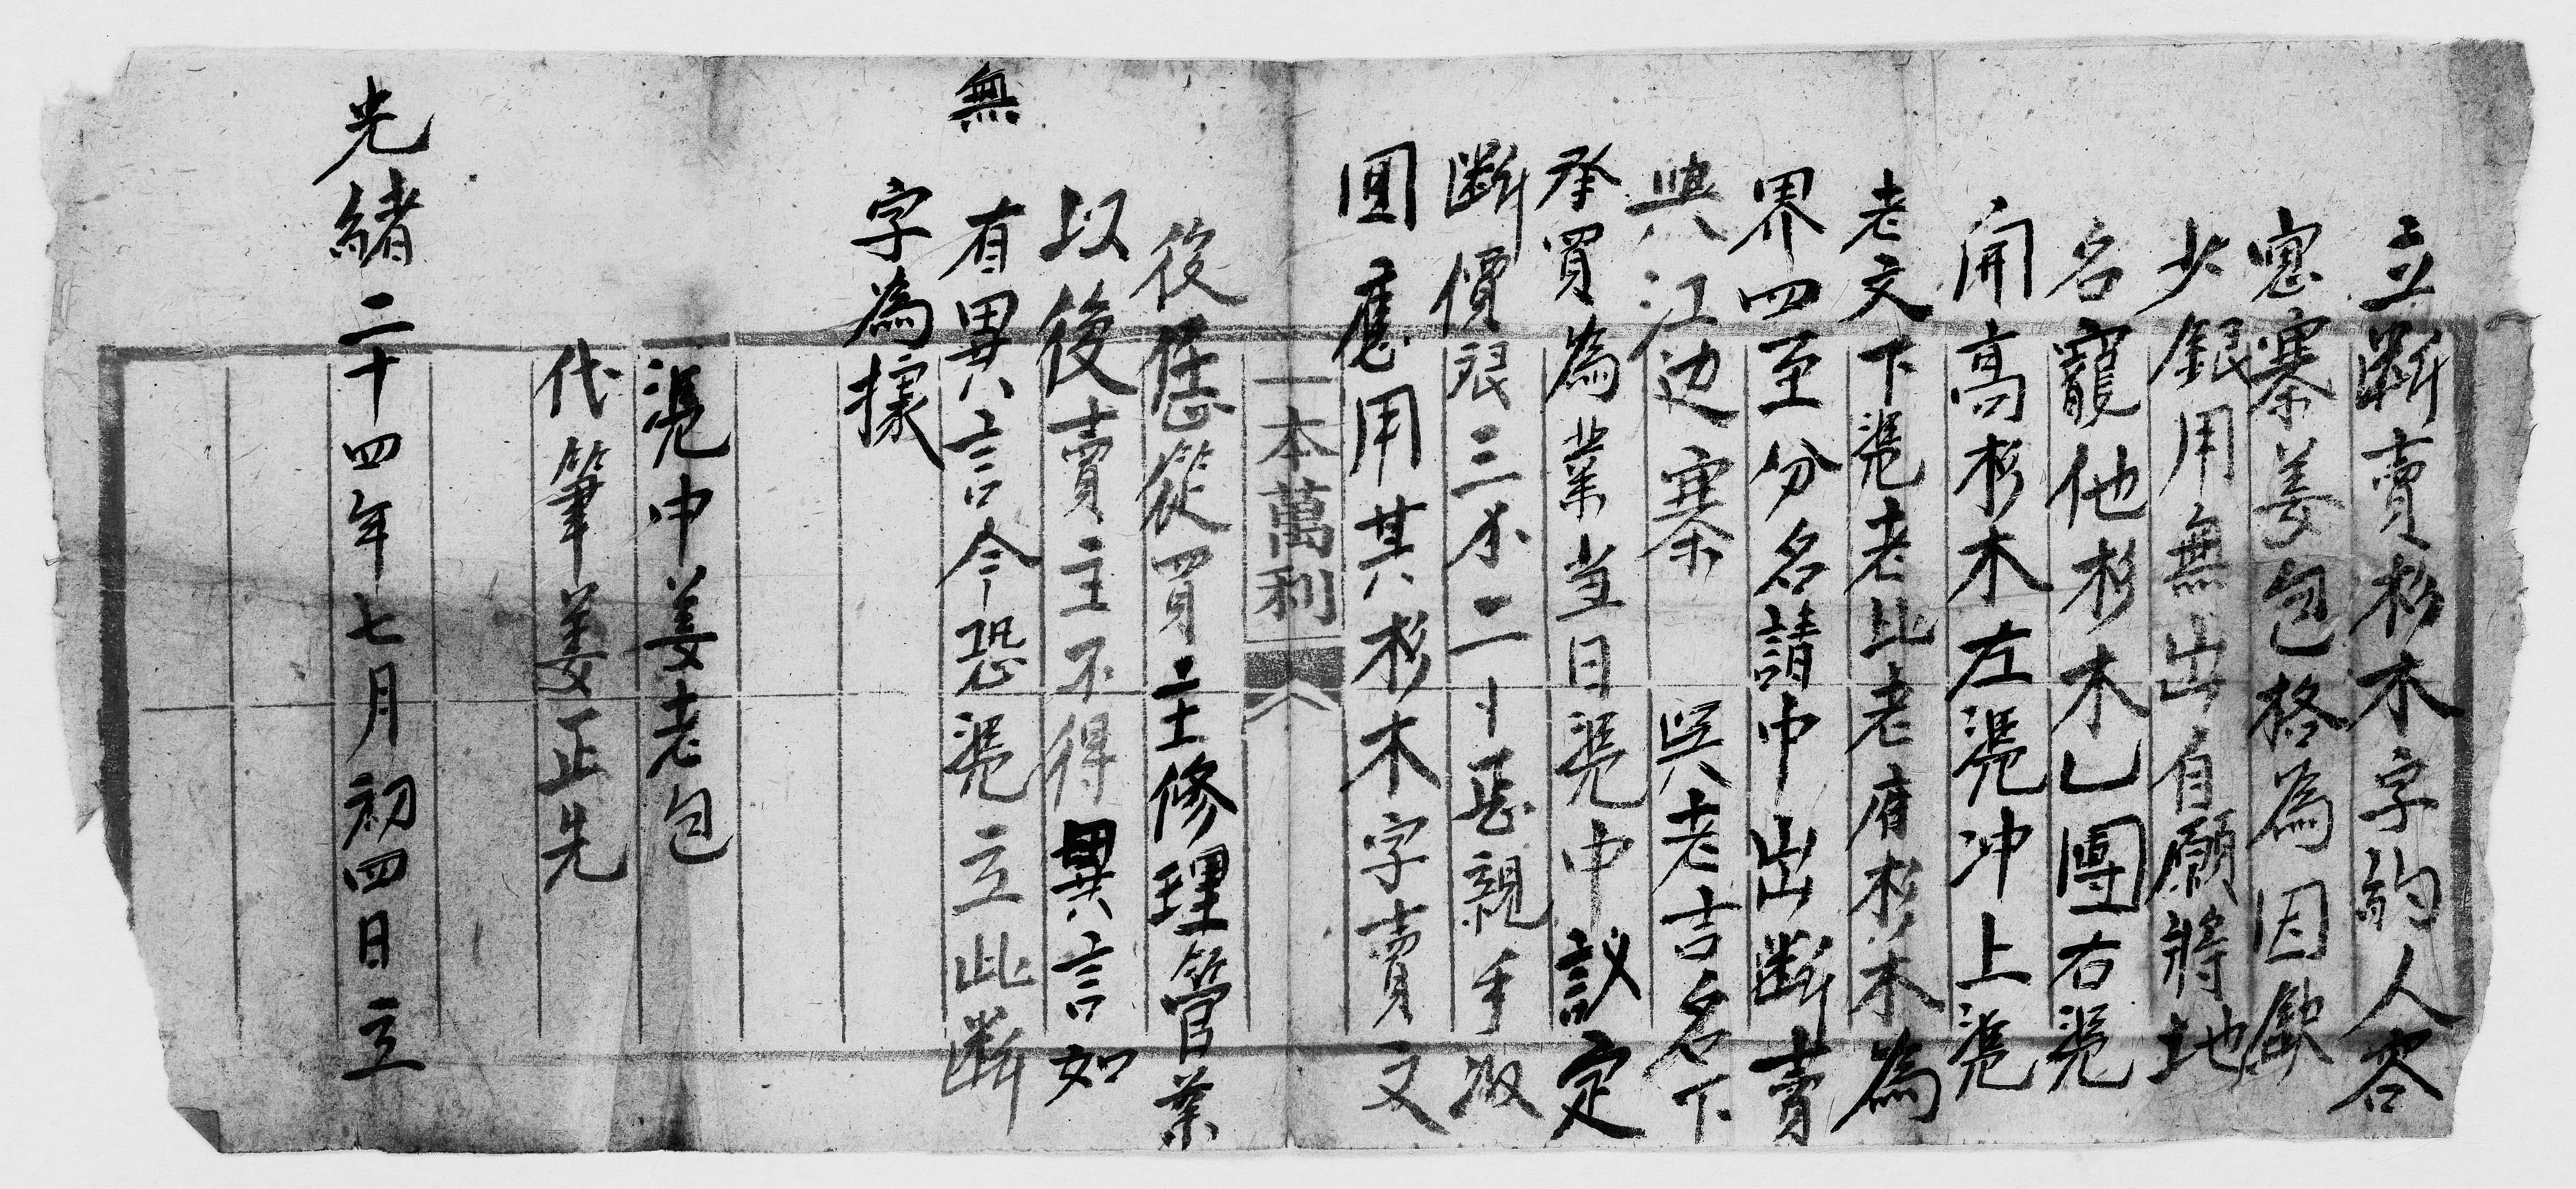 立斷賣杉木字約人容
寃寨姜包格為因歉
少銀用無出自願將地
名寵他杉木乚團右凴
開高杉木左凴冲上凴
老文下凴老比老唐杉木為
界四至分名請中出斷賣
與江边寨 吳老吉名下
承買為業当日凴中議定
斷價銀三不二卜正親手收
囬應用其杉木字賣文
一本萬利
後恁從買主修理管業
以後賣主不得異言如
無有異言今恐凴立此斷
字為據
凴中姜老包
代筆姜正先
光緒二十四年七月初四日立